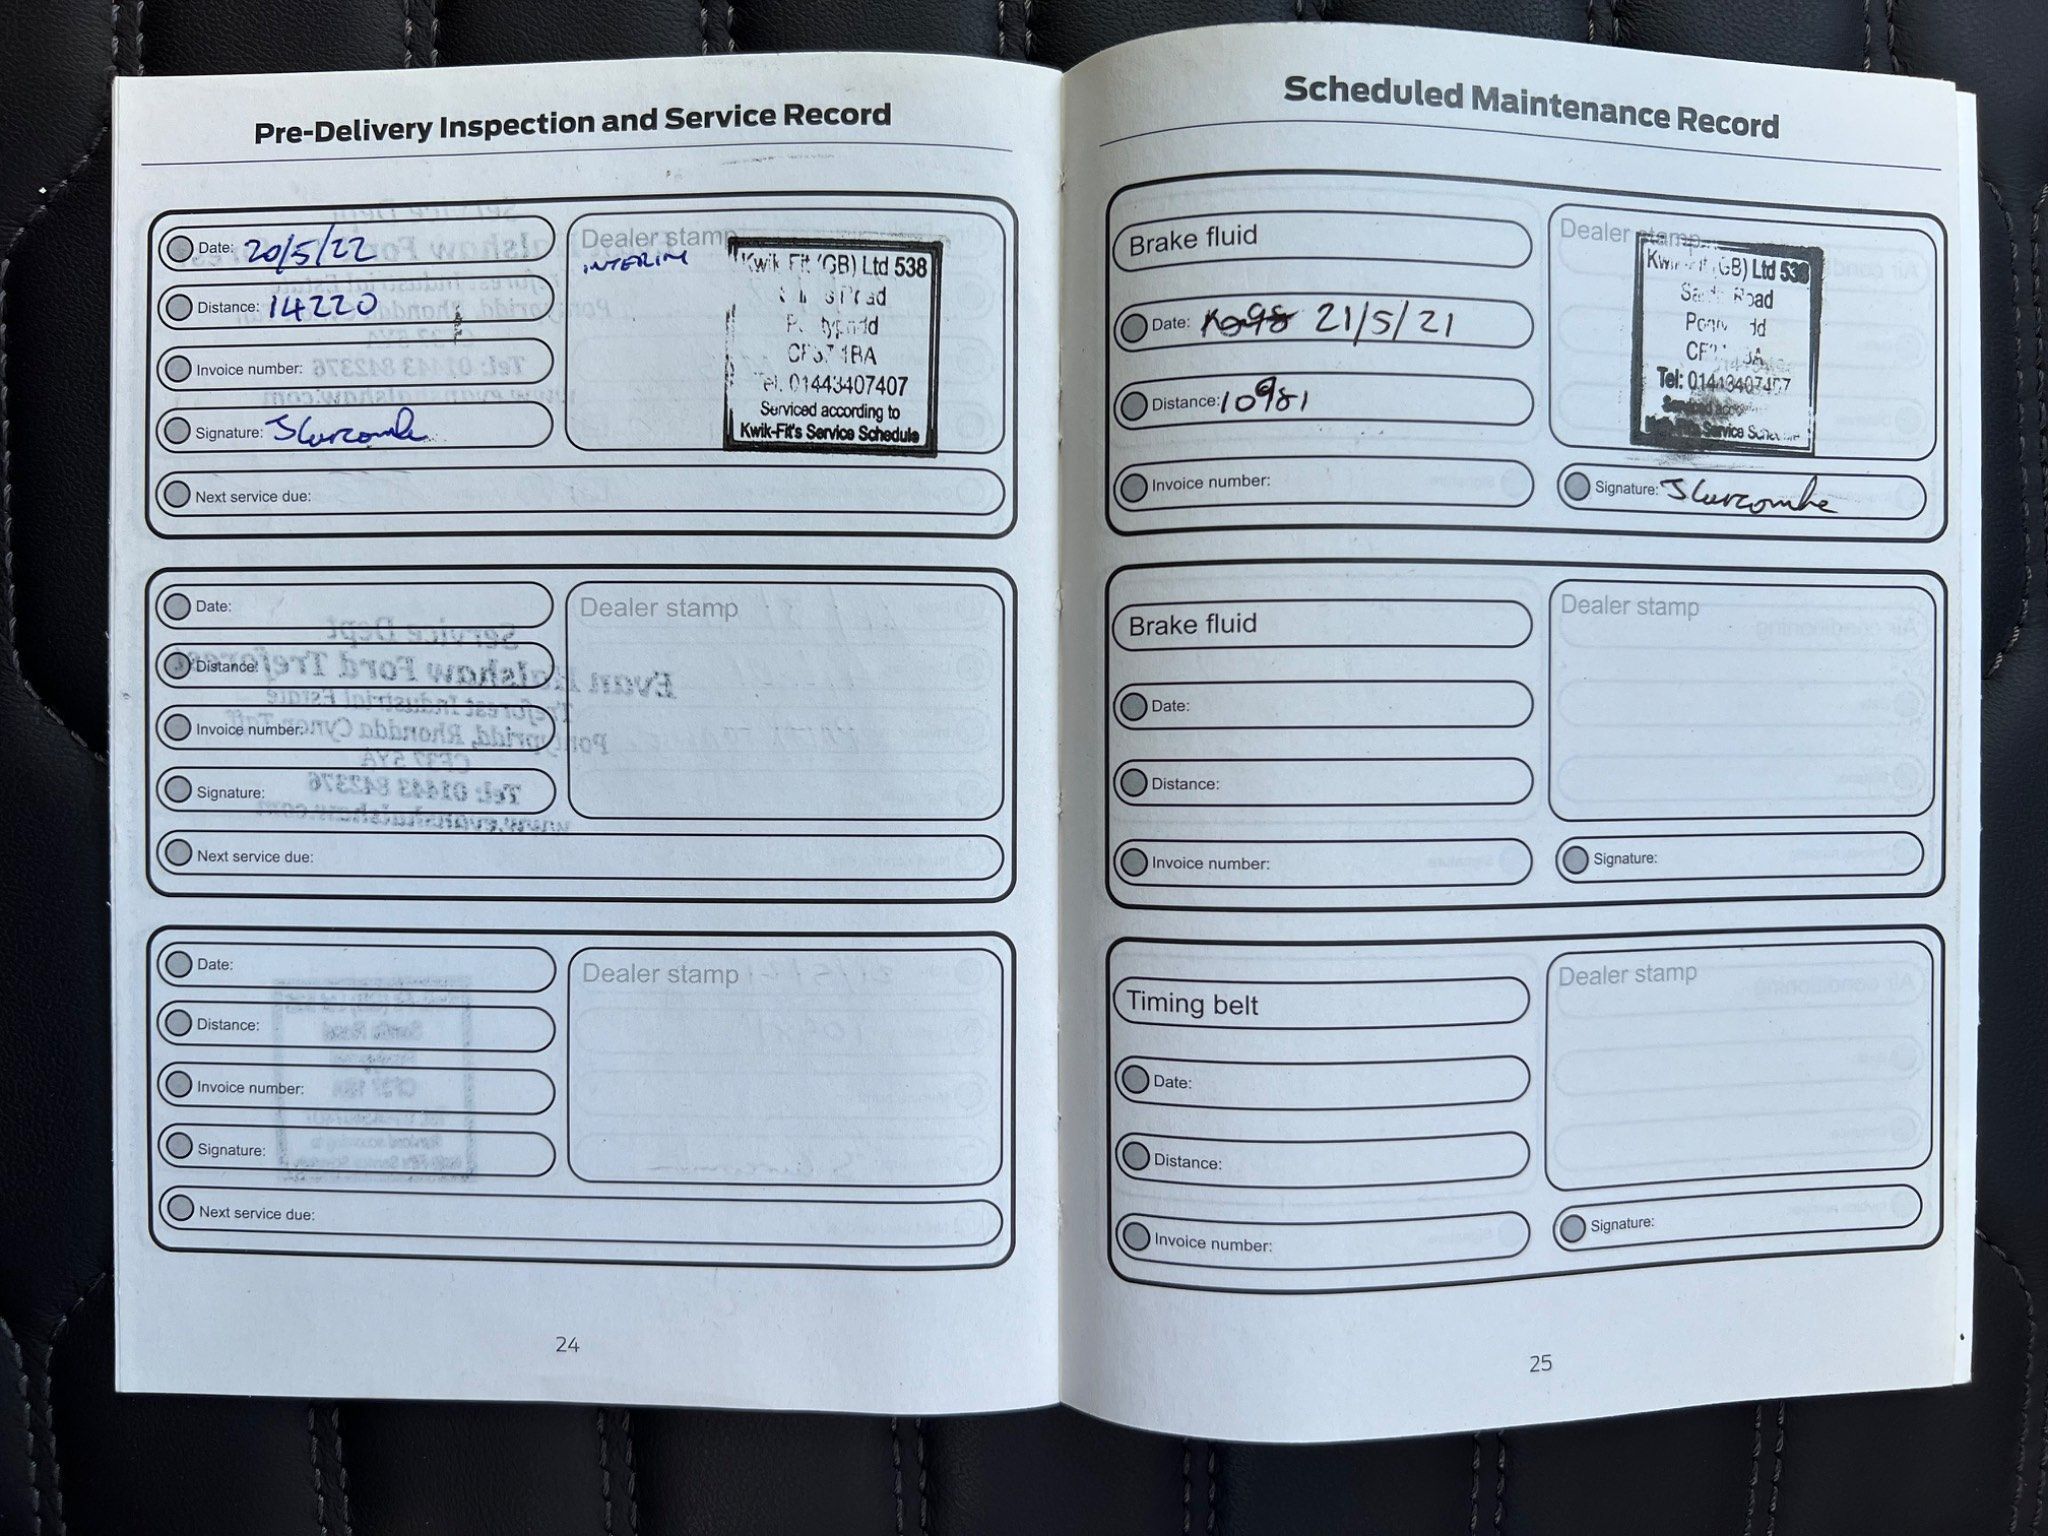 Pre-Delivery Inspection and Service Record
Date: 20/5/22
Distance: 14220
Invoice number:
Signature:
Next service due:
Dealer stamp
INTERIM
Kwik Fit (GB) Ltd 538
CF37 1BA
Tel: 01443407407
Serviced according to
Kwik-Fit's Service Schedule
Date:
Distance:
Invoice number:
Signature:
Next service due:
Dealer stamp
Date:
Distance:
Invoice number:
Signature:
Next service due:
Dealer stamp
24
Scheduled Maintenance Record
Brake fluid
Date: 21/5/21
Distance: 10981
Invoice number:
Dealer stamp
Kwik-Fit (GB) Ltd 538
Road
Tel: 01443407407
Serviced
Service
Signature:
Brake fluid
Date:
Distance:
Invoice number:
Dealer stamp
Signature:
Timing belt
Date:
Distance:
Invoice number:
Dealer stamp
Signature:
25